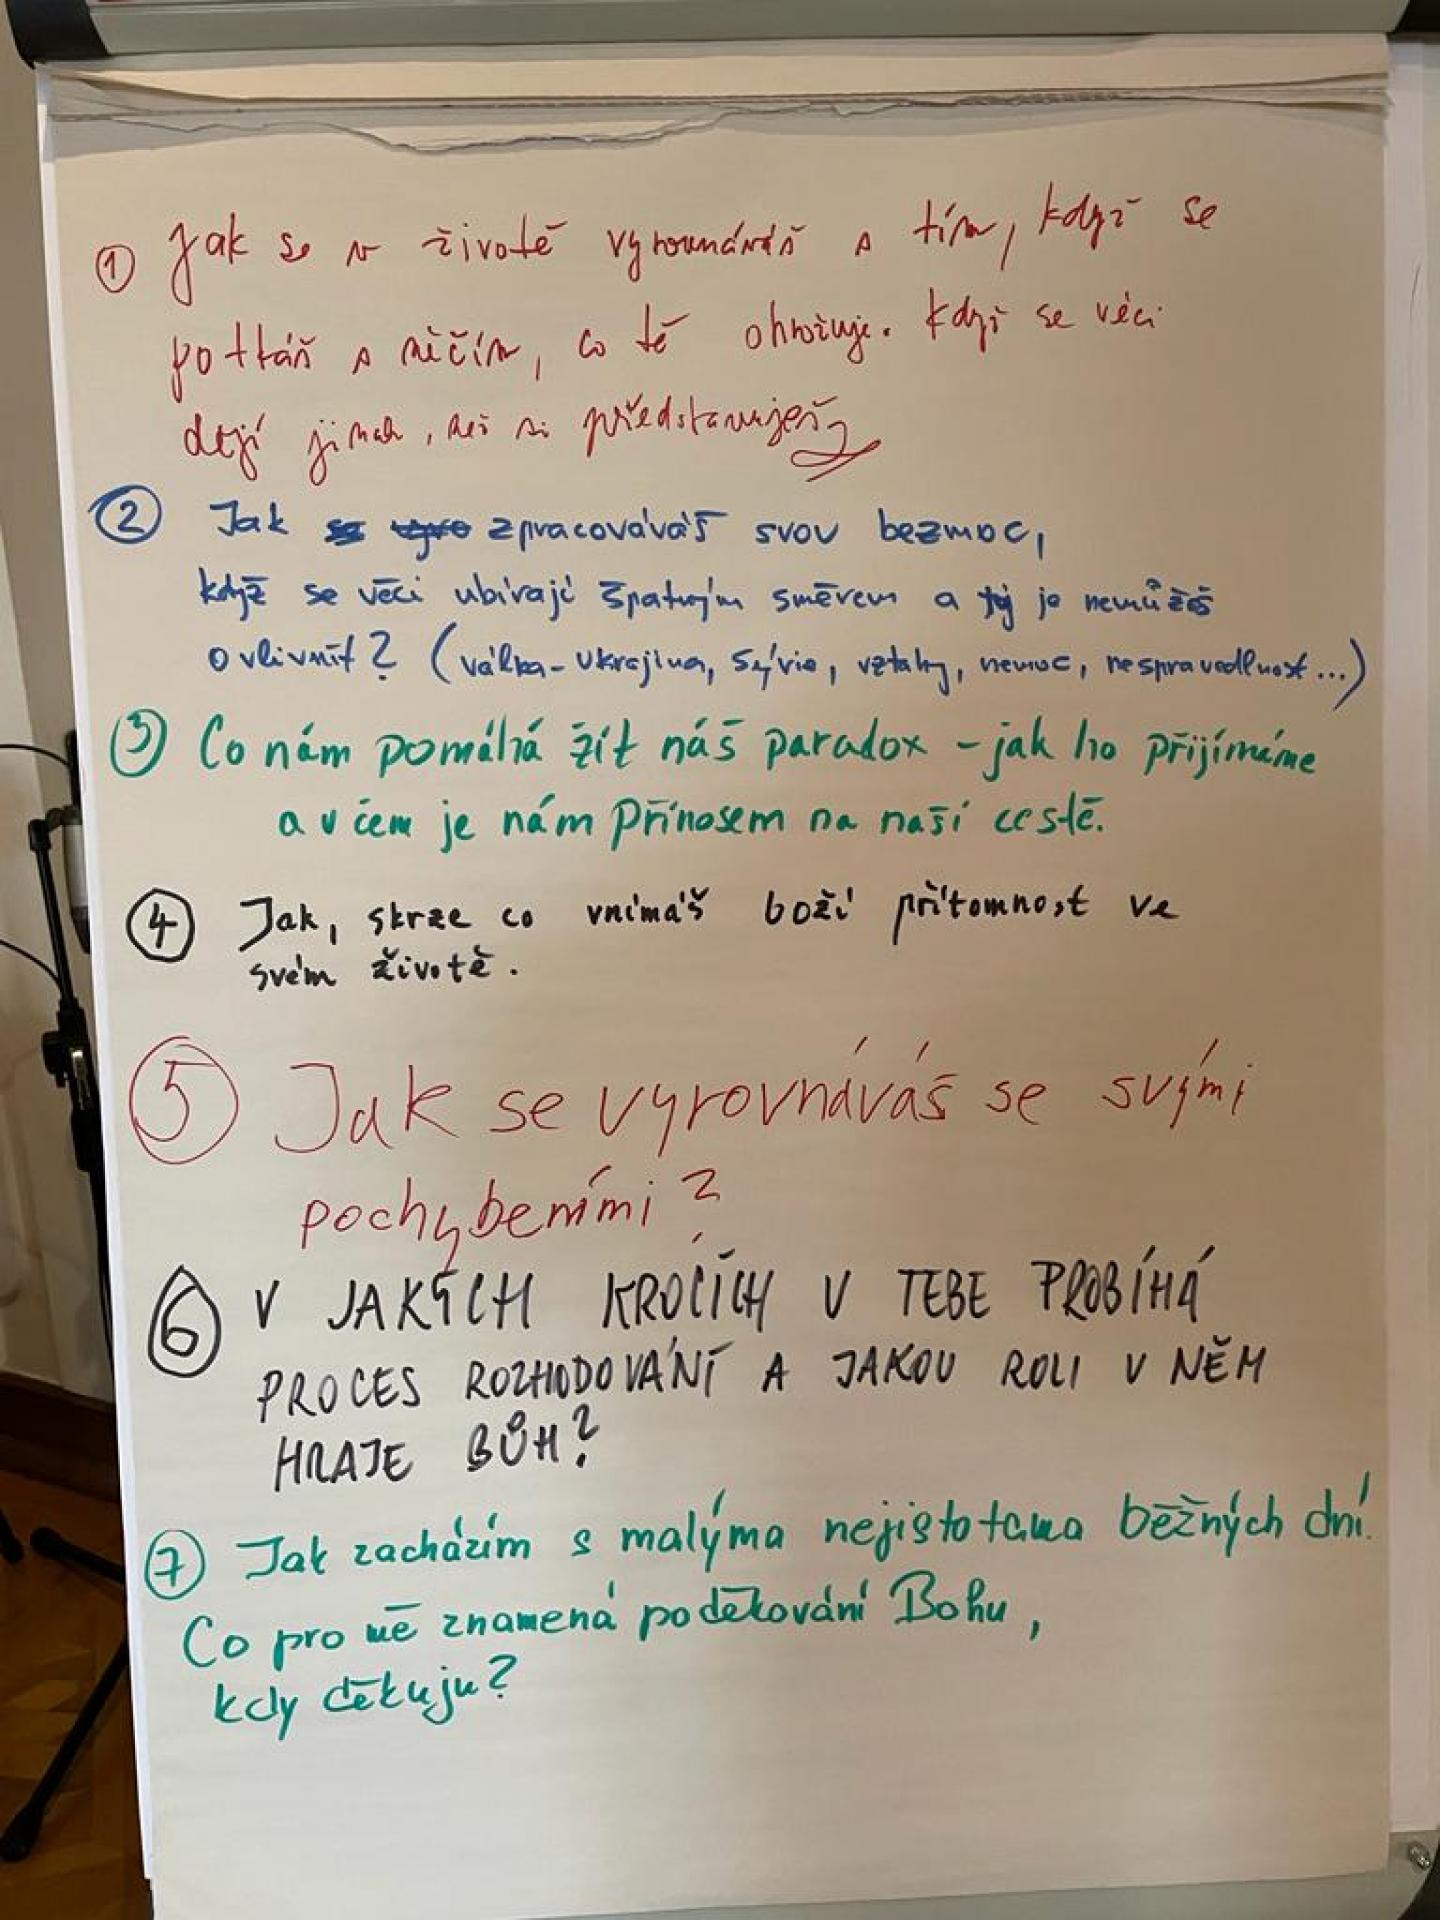 ① Jak se v životě vyrovnáváš s tím, když se
potkáš s něčím, co tě ohrožuje. Když se věci
dějí jinak, než si představuješ
② Jak zpracováváš svou bezmoc,
když se věci ubírají špatným směrem a je nemůžeš
ovlivnit? (válka - Ukrajina, Sýrie, vztahy, nemoc, nespravedlnost...)
③ Co nám pomáhá žít náš paradox - jak ho přijímáme
a v čem je nám přínosem na naší cestě.
④ Jak, skrze co vnímáš boží přítomnost ve
svém životě.
⑤ Jak se vyrovnáváš se svými
pochybeními?
⑥ V JAKÝCH KROCÍCH V TEBE PROBÍHÁ
PROCES ROZHODOVÁNÍ A JAKOU ROLI V NĚM
HRAJE BŮH?
⑦ Jak zacházím s malýma nejistotama běžných dní.
Co pro mě znamená poděkování Bohu,
kdy děkuju?